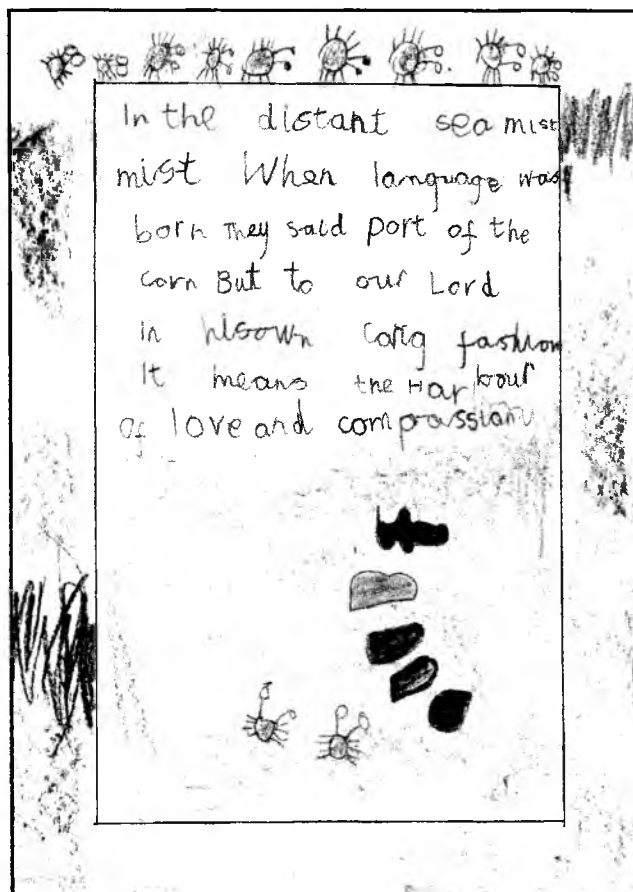 In the distant sea mist
mist When language was
born They said port of the
corn But to our Lord
in hisown carig fashion
It means the Harbour
of love and compassion